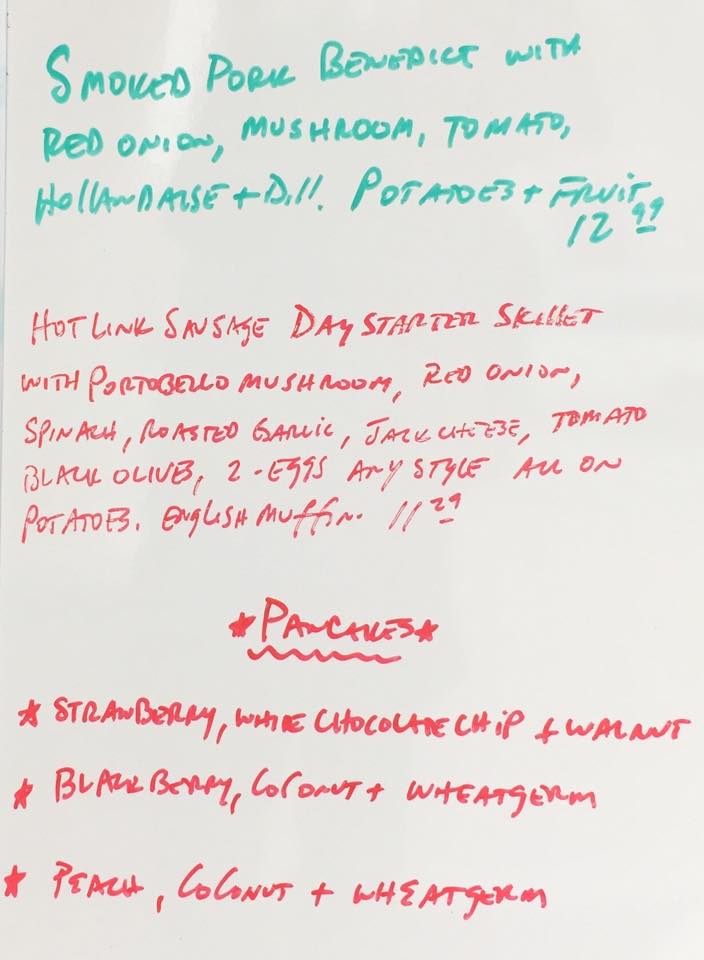 SMOKED PORK BENEDICT WITH
RED ONION, MUSHROOM, TOMATO,
HOLLANDAISE + Dill. POTATOES + FRUIT
12 99
HOT LINK SAUSAGE DAY STARTER SKILLET
WITH PORTOBELLO MUSHROOM, RED ONION,
SPINACH, ROASTED GARLIC, JACK CHEESE, TOMATO
BLACK OLIVES, 2-EGGS ANY STYLE ALL ON
POTATOES. ENGLISH MUFFIN. 11 29
*PANCAKES*
* STRAWBERRY, WHITE CHOCOLATE CHIP + WALNUT
* BLACKBERRY, COCONUT + WHEATGERM
* PEACH, COCONUT + WHEATGERM